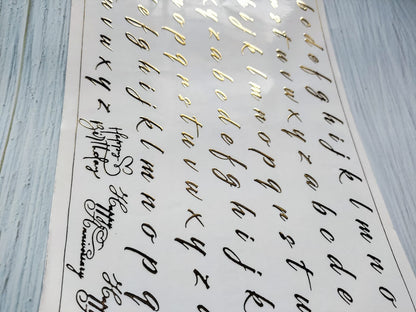 b c d e f g h i j k l m n o
r s t u v w x y z a b c d e
h i j k l m n o p q r s t u
x y z a b c d e f g h i j k
n o p q r s t u v w x y z
d e f g h i j k l m n o p q
u v w x y z
Happy
Birthday
Happy
Anniversary